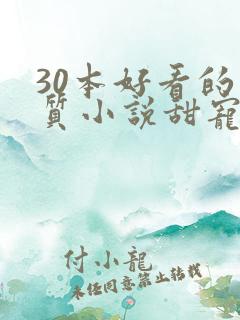 30本好看的
质小说甜宠
付小龙
未经同意禁止转载